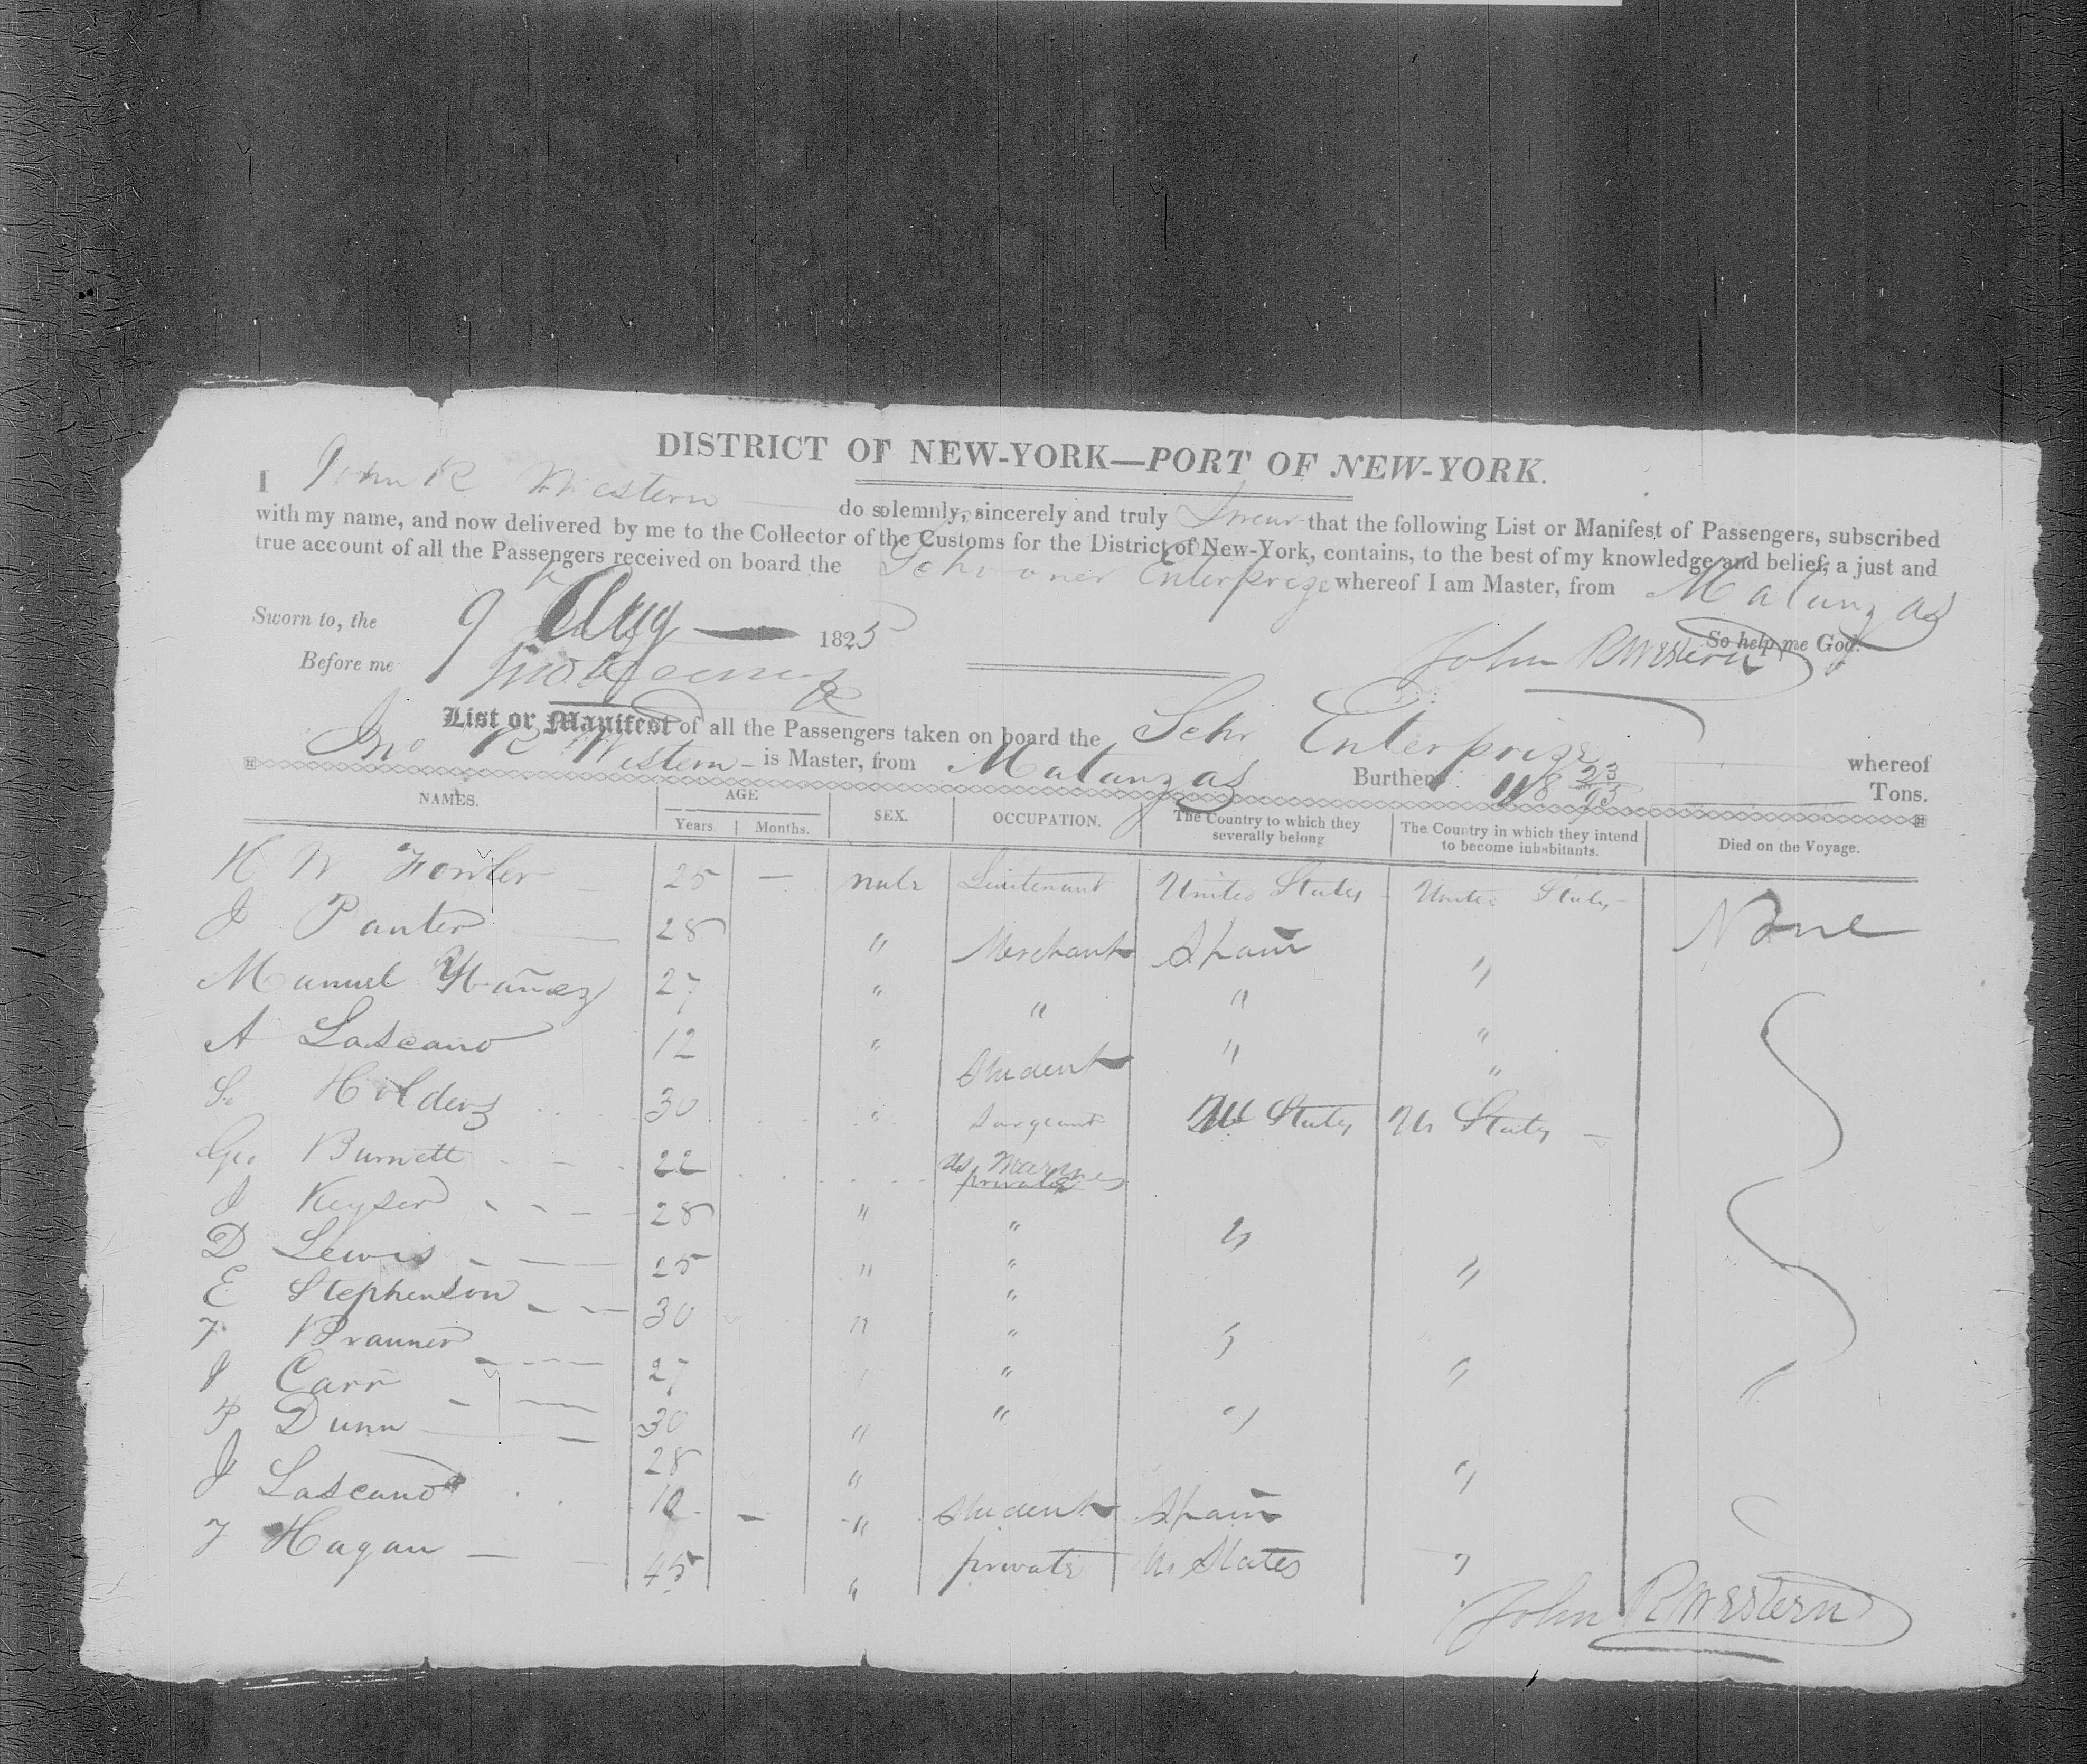 DISTRICT OF NEW-YORK—PORT OF NEW-YORK.
I John R Western do solemnly, sincerely and truly Swear that the following List or Manifest of Passengers, subscribed
with my name, and now delivered by me to the Collector of the Customs for the District of New-York, contains, to the best of my knowledge and belief, a just and
true account of all the Passengers received on board the Schooner Enterprize whereof I am Master, from Matanzas
So help me God.
Sworn to, the 9 Aug 1825
Before me John R Western
List or Manifest of all the Passengers taken on board the Schr Enterprize whereof
Jno R Western is Master, from Matanzas Burthen 118 23/95 Tons.
NAMES. AGE SEX. OCCUPATION. The Country to which they severally belong The Country in which they intend to become inhabitants. Died on the Voyage.
Years. Months.
H W Fowler 25 — male Lieutenant United States United States None
J Panter 28 " Merchant Spain "
Manuel Ybañez 27 " " " "
A Lascano 12 " Student " "
S. Holders 30 " Sargeant U States U States
Geo Burnett 22 US Marines privates
J Keyser 28 " " "
D Lewis 25 " " "
E Stephenson 30 " "
F Brauner 27 " "
J Carr 30 " " "
P Dunn 28 " " "
J Lascano 10 — " Student Spain
F Hagan 45 " private U States "
John R Western